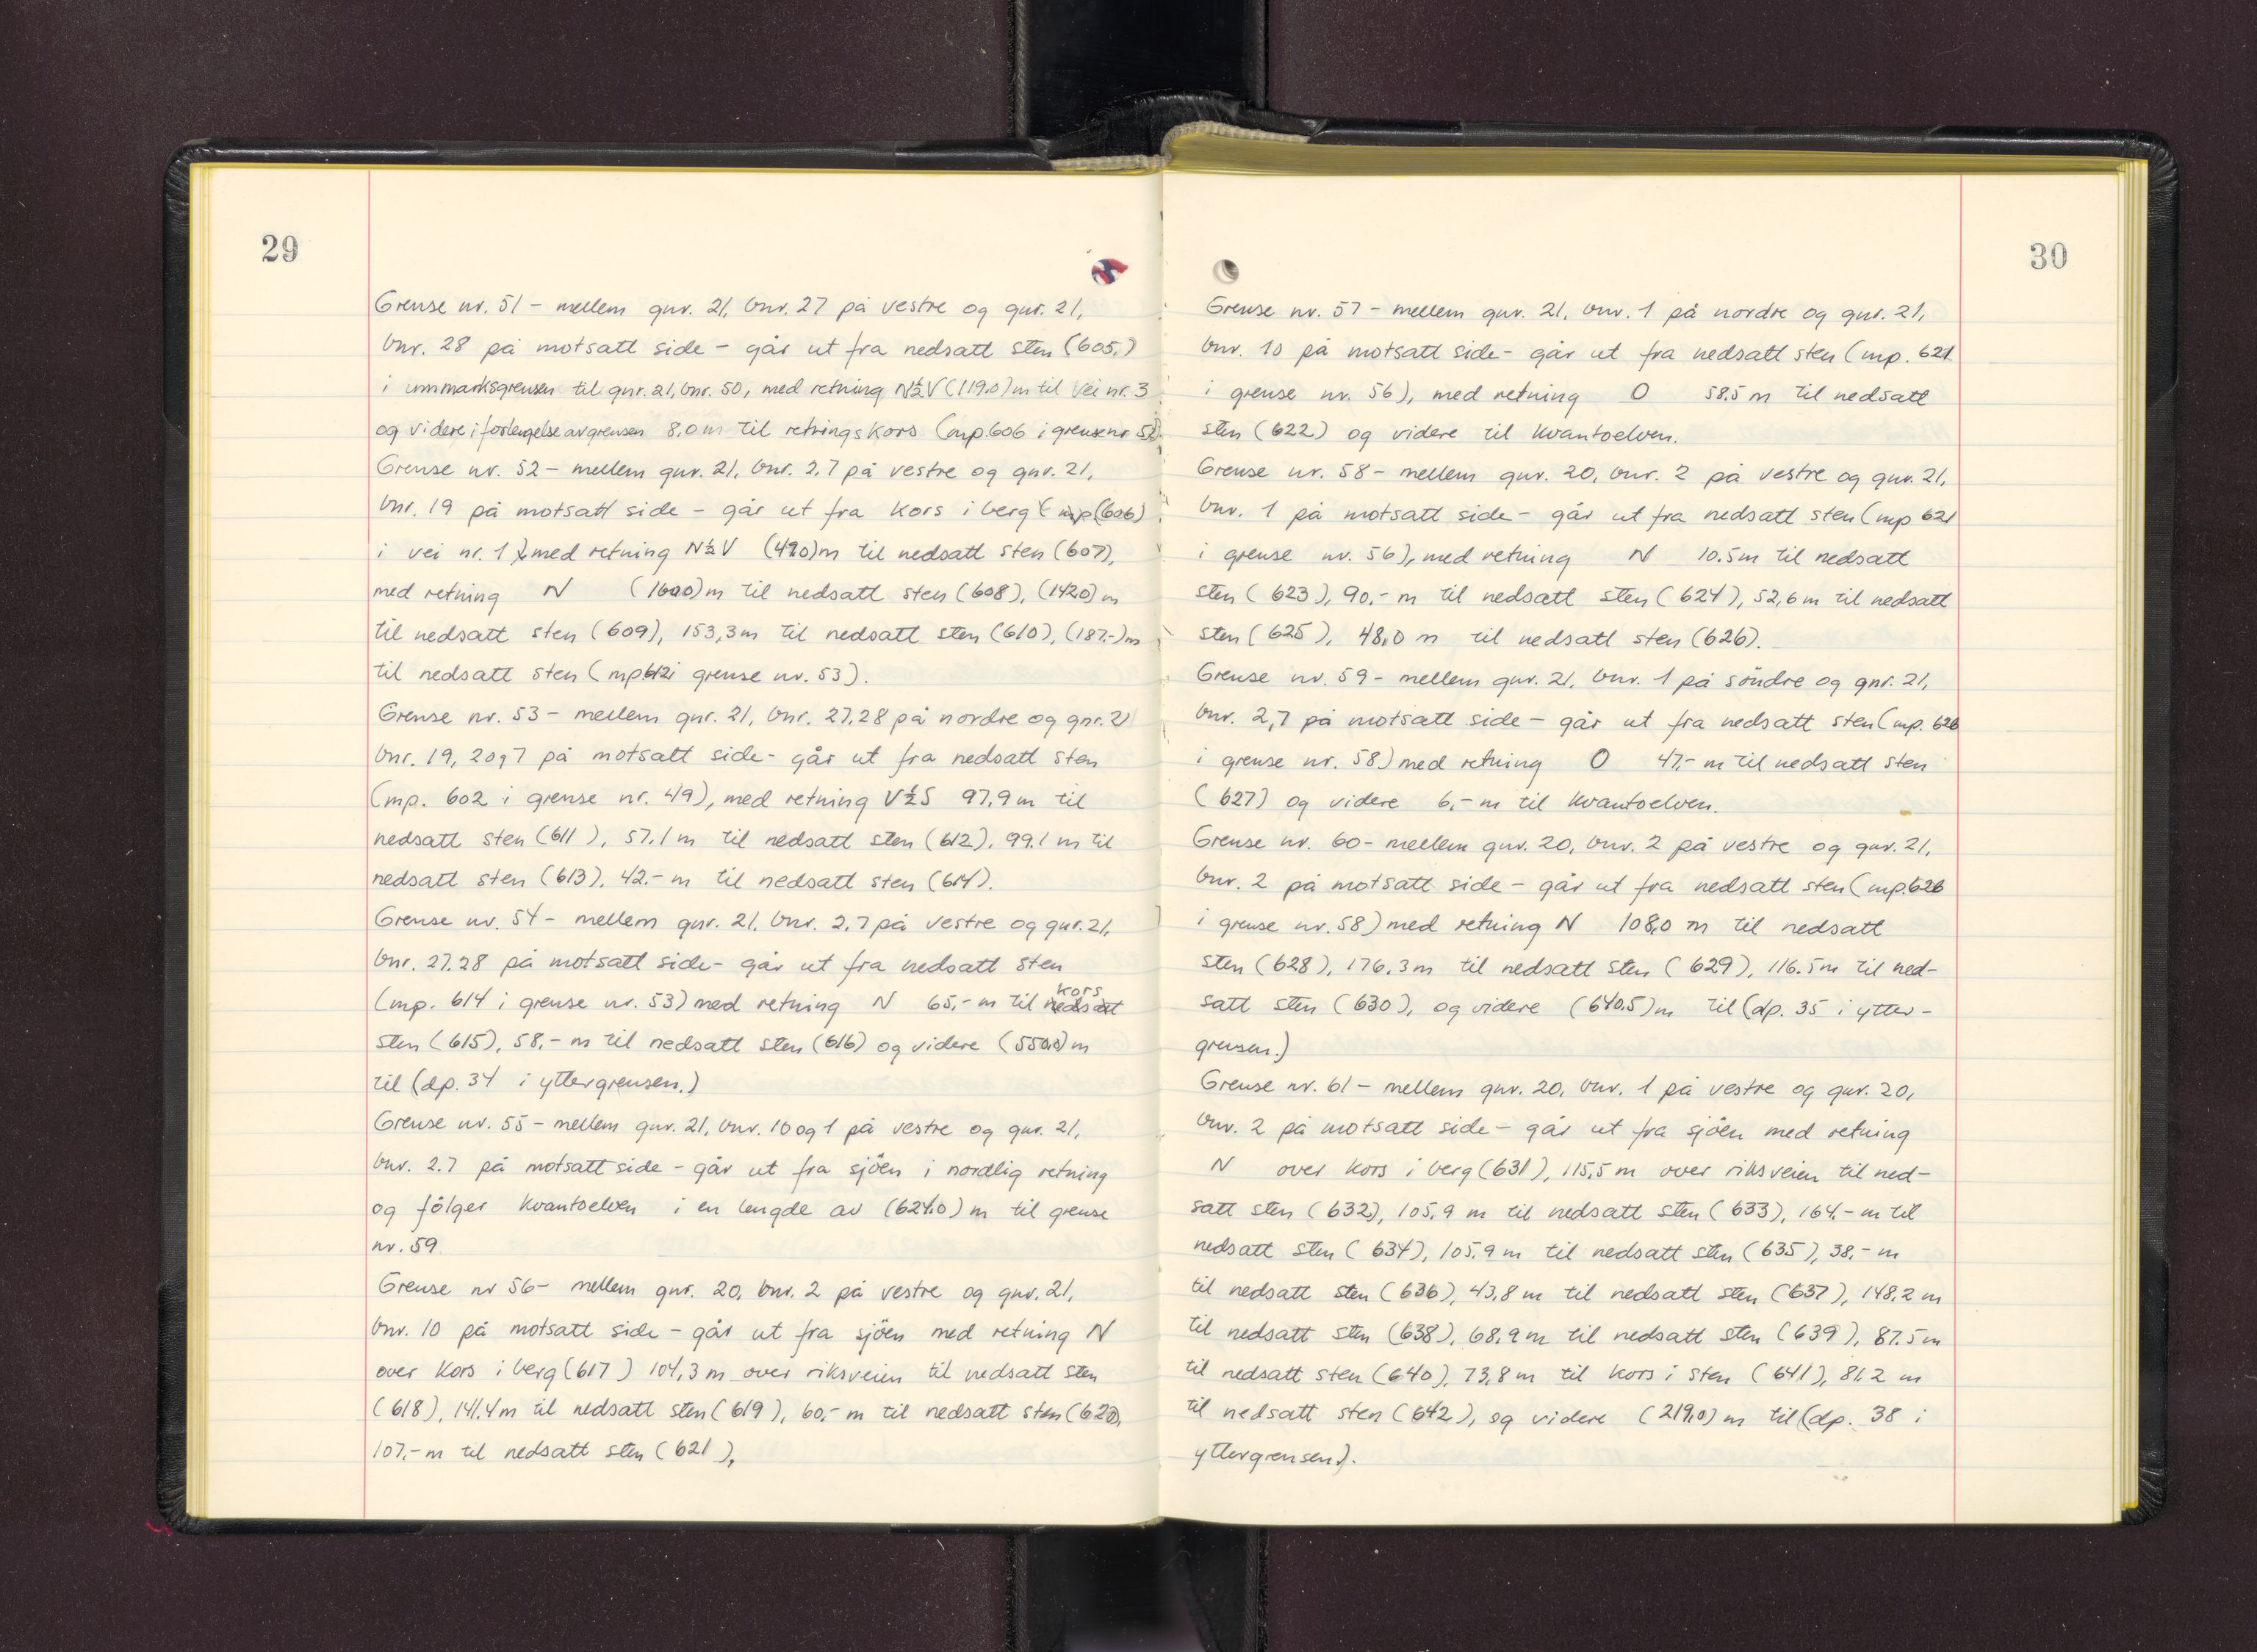 29
Grense nr. 51 - mellem gnr. 21, bnr. 27 på vestre og gnr. 21,
bnr. 28 på motsatt side - går ut fra nedsatt sten (605.)
i innmarksgrensen til gnr. 21, bnr. 50, med retning N½V (119.0) m til vei nr. 3
og videre i forlengelse av grensen 8,0 m til retningskors (mp. 606 i grense nr. 52).
Grense nr. 52 - mellem gnr. 21, bnr. 2,7 på vestre og gnr. 21,
bnr. 19 på motsatt side - går ut fra kors i berg (mp (606)
i vei nr. 1 med retning N½V (490) m til nedsatt sten (607),
med retning N (1600) m til nedsatt sten (608), (1420) m
til nedsatt sten (609), 153,3 m til nedsatt sten (610), (187.-) m
til nedsatt sten (mp 612 i grense nr. 53).
Grense nr. 53 - mellem gnr. 21, bnr. 27,28 på nordre og gnr. 21
bnr. 19, 2 og 7 på motsatt side - går ut fra nedsatt sten
(mp. 602 i grense nr. 49), med retning V½S 97,9 m til
nedsatt sten (611), 57,1 m til nedsatt sten (612), 99,1 m til
nedsatt sten (613), 42.- m til nedsatt sten (614).
Grense nr. 54 - mellem gnr. 21, bnr. 2,7 på vestre og gnr. 21,
bnr. 27.28 på motsatt side - går ut fra nedsatt sten
(mp. 614 i grense nr. 53) med retning N 65,- m til nedsatt kors
sten (615), 58,- m til nedsatt sten (616) og videre (550,0) m
til (dp. 34 i yttergrensen.)
Grense nr. 55 - mellem gnr. 21, bnr. 10 og 1 på vestre og gnr. 21,
bnr. 2.7 på motsatt side - går ut fra sjöen i nordlig retning
og fölger Kvantoelven i en lengde av (624.0) m til grense
nr. 59.
Grense nr 56 - mellem gnr. 20, bnr. 2 på vestre og gnr. 21,
bnr. 10 på motsatt side - går ut fra sjöen med retning N
over kors i berg (617) 104,3 m over riksveien til nedsatt sten
(618), 141,4 m til nedsatt sten (619), 60,- m til nedsatt sten (620),
107,- m til nedsatt sten (621),
30
Grense nr. 57 - mellem gnr. 21, bnr. 1 på nordre og gnr. 21,
bnr. 10 på motsatt side - går ut fra nedsatt sten (mp. 621
i grense nr. 56), med retning O 58,5 m til nedsatt
sten (622) og videre til Kvantoelven.
Grense nr. 58 - mellem gnr. 20, bnr. 2 på vestre og gnr. 21,
bnr. 1 på motsatt side - går ut fra nedsatt sten (mp 621
i grense nr. 56), med retning N 10.5 m til nedsatt
sten (623), 90,- m til nedsatt sten (624), 52,6 m til nedsatt
sten (625), 48,0 m til nedsatt sten (626).
Grense nr. 59 - mellem gnr. 21, bnr. 1 på söndre og gnr. 21,
bnr. 2,7 på motsatt side - går ut fra nedsatt sten (mp. 626
i grense nr. 58) med retning O 47,- m til nedsatt sten
(627) og videre 6,- m til Kvantoelven.
Grense nr. 60 - mellem gnr. 20, bnr. 2 på vestre og gnr. 21,
bnr. 2 på motsatt side - går ut fra nedsatt sten (mp. 626
i grense nr. 58) med retning N 108,0 m til nedsatt
sten (628), 176,3 m til nedsatt sten (629), 116.5 m til ned-
satt sten (630), og videre (640.5) m til (dp. 35 i ytter-
grensen.)
Grense nr. 61 - mellem gnr. 20, bnr. 1 på vestre og gnr. 20,
bnr. 2 på motsatt side - går ut fra sjöen med retning
N over kors i berg (631), 115,5 m over riksveien til ned-
satt sten (632), 105,9 m til nedsatt sten (633), 164,- m til
nedsatt sten (634), 105,9 m til nedsatt sten (635), 38,- m
til nedsatt sten (636), 43,8 m til nedsatt sten (637), 148,2 m
til nedsatt sten (638), 68,9 m til nedsatt sten (639), 87.5 m
til nedsatt sten (640), 73,8 m til kors i sten (641), 81,2 m
til nedsatt sten (642), og videre (219,0) m til (dp. 38 i
yttergrensen).